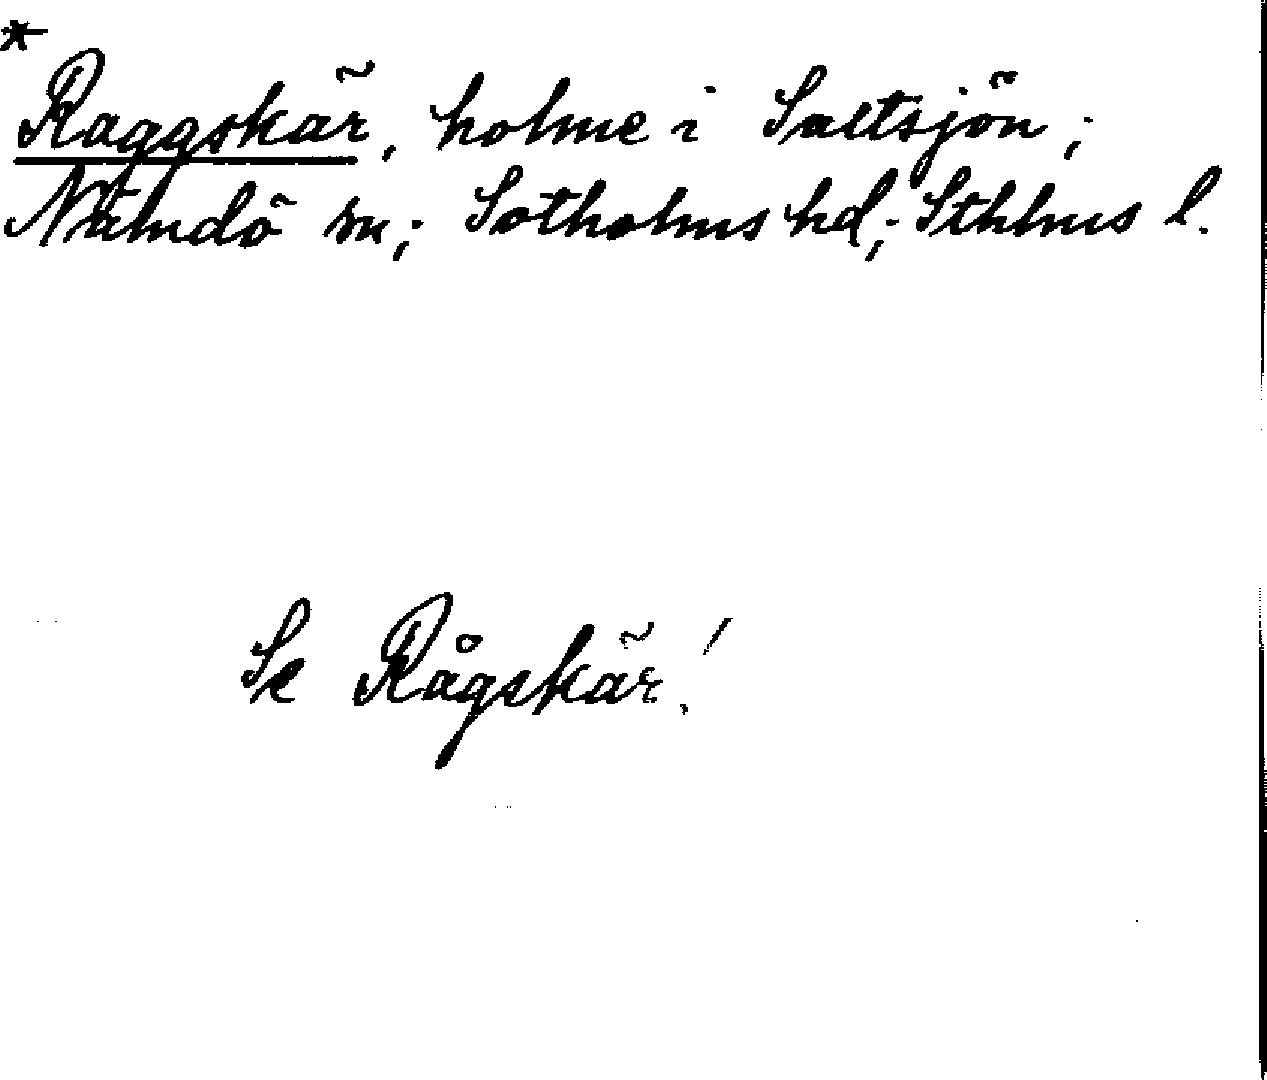 *
Raggskär, holme i Saltsjön;
Nämdö sn; Sotholms hd; Sthlms l.
Se Rågskär!